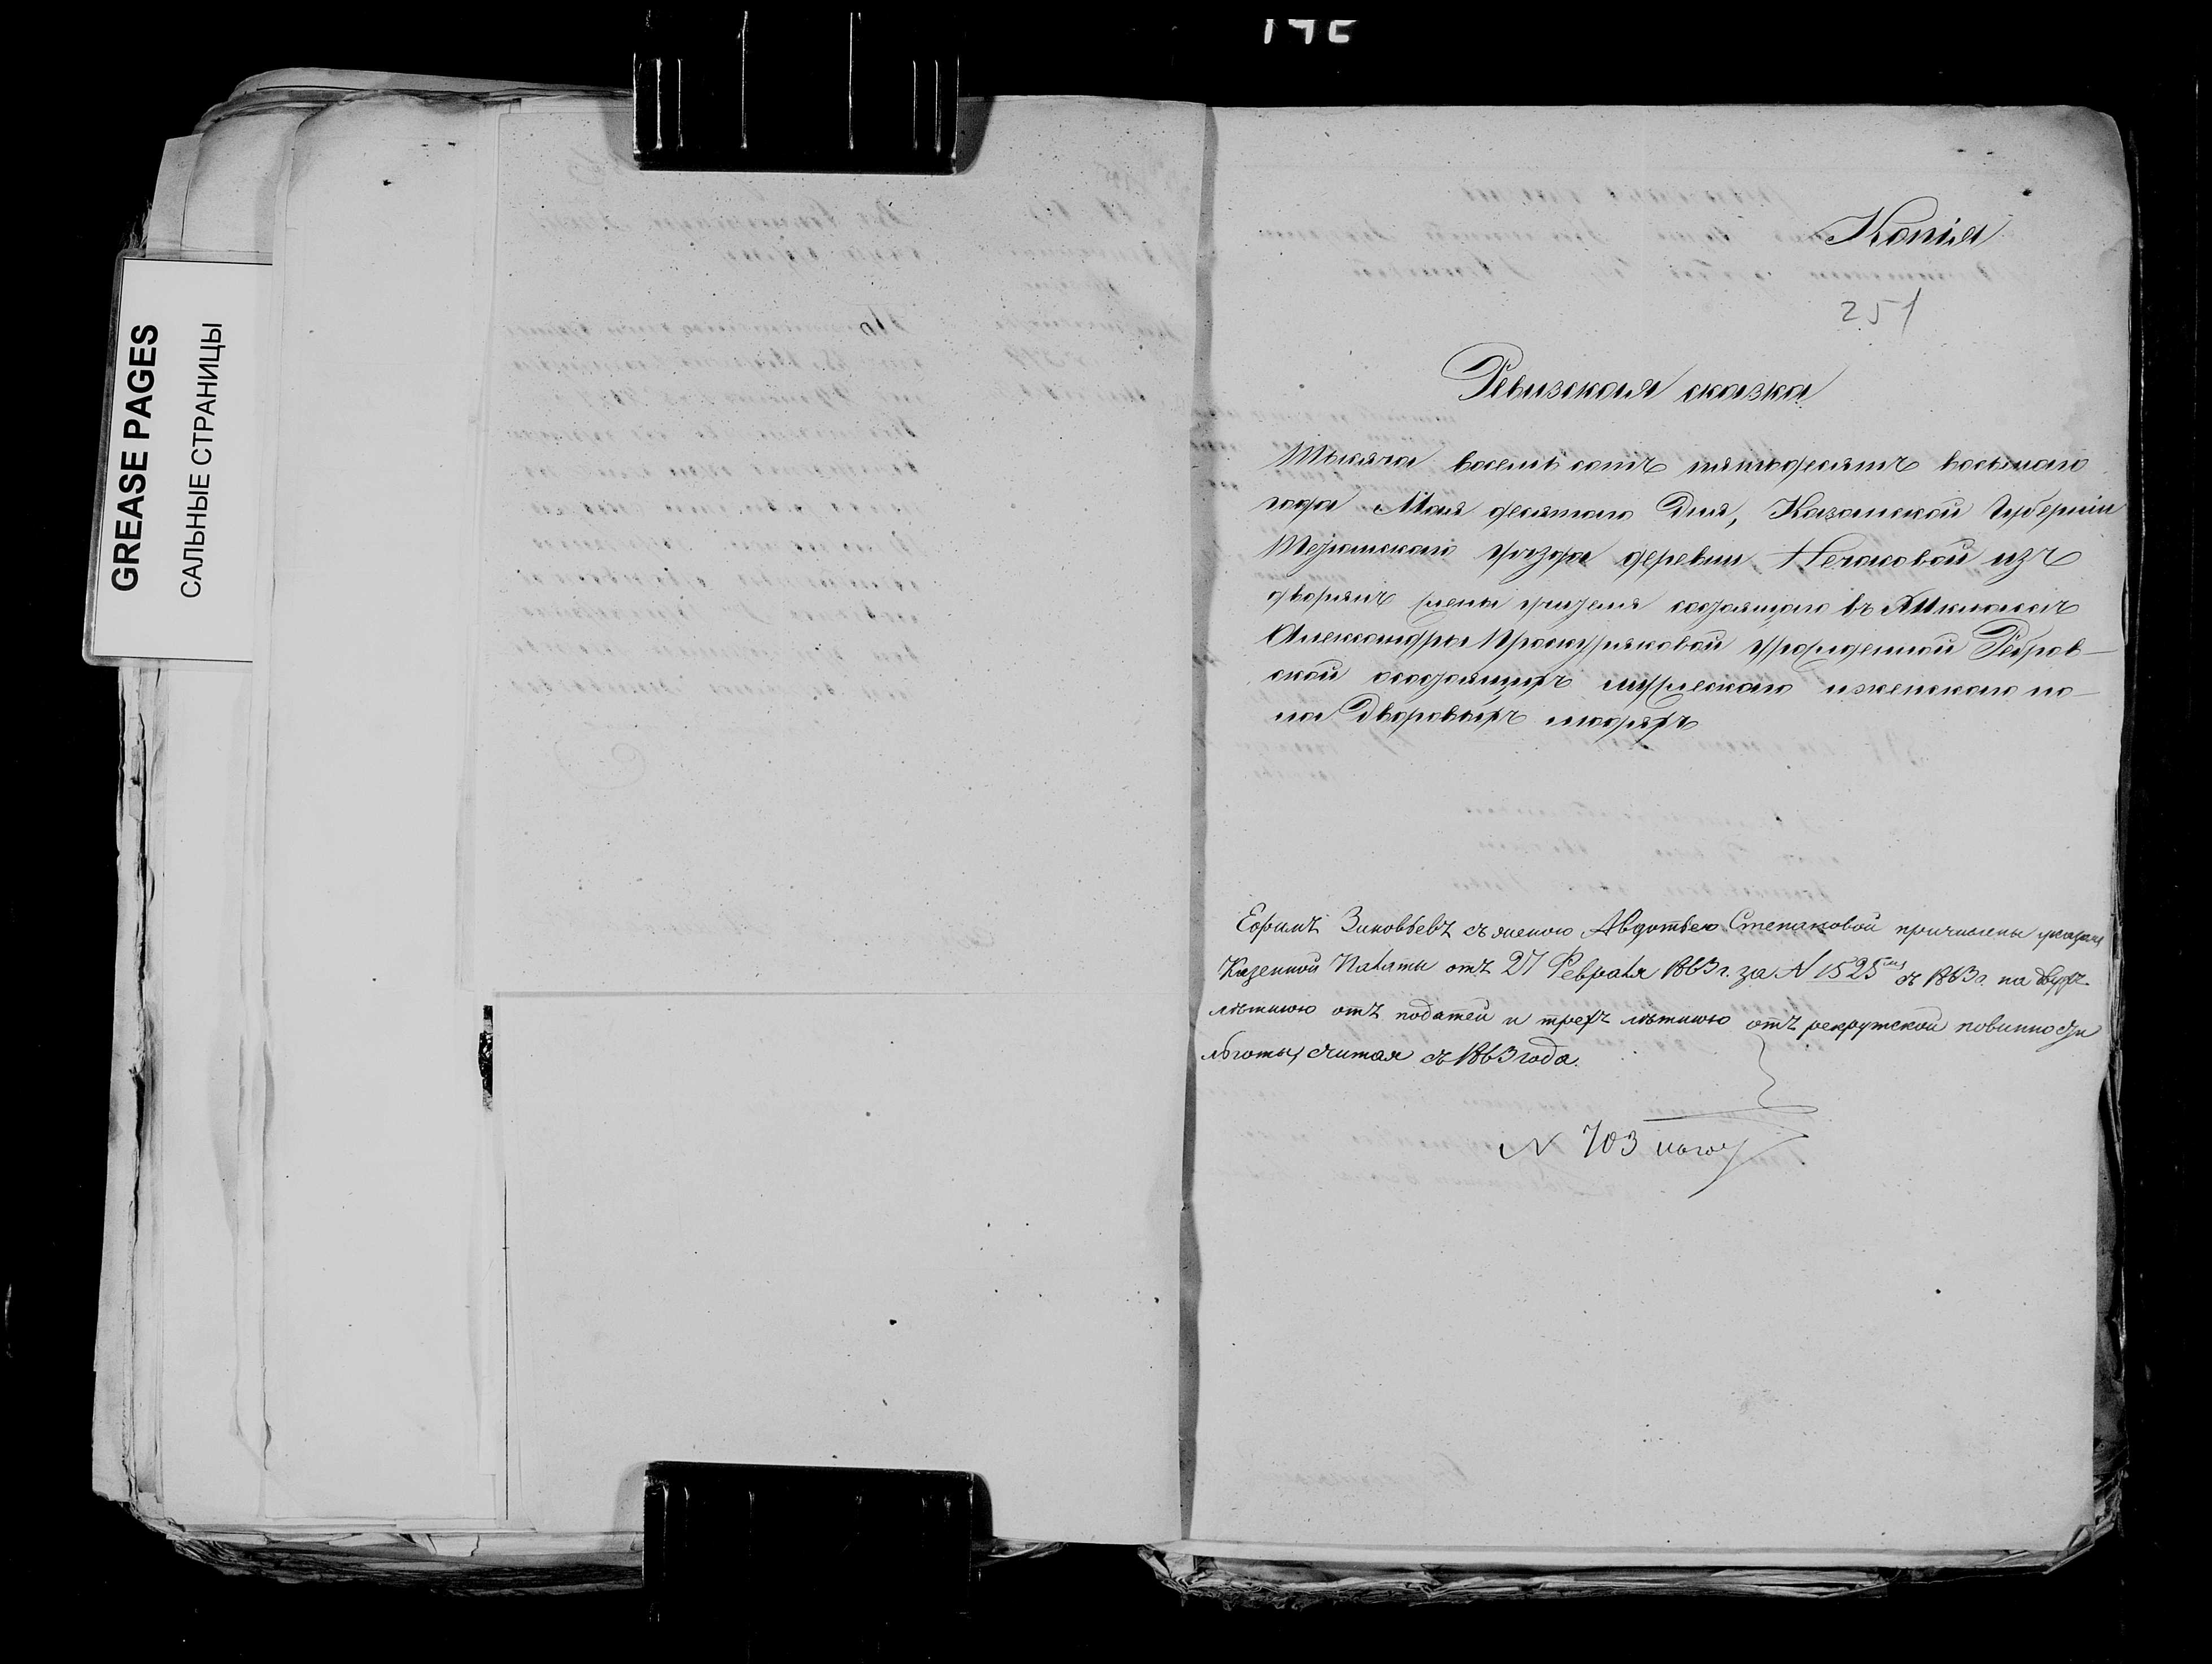 GREASE PAGES
САЛЬНЫЕ СТРАНИЦЫ
Копія
251
Ревизская сказка
Тысяча восемь сотъ пятьдесятъ восьмаго
года Мая десятаго Дня, Казанской Губерніи
уѣзда деревни из
дворянъ жены
Александры Проскуряковой урожденной
ской мужескаго и женскаго по-
ла Дворовыхъ людяхъ
Ефимъ Зиновьевъ съ женою Авдотьею Степановой причислены указом
Казенной Палаты отъ 27 Февраля 1863 г. за N 1525 съ 1863 г. на двухъ
лѣтнюю отъ податей и трехъ лѣтнюю отъ рекрутской повинности
льготы, считая съ 1863 года.
N 703